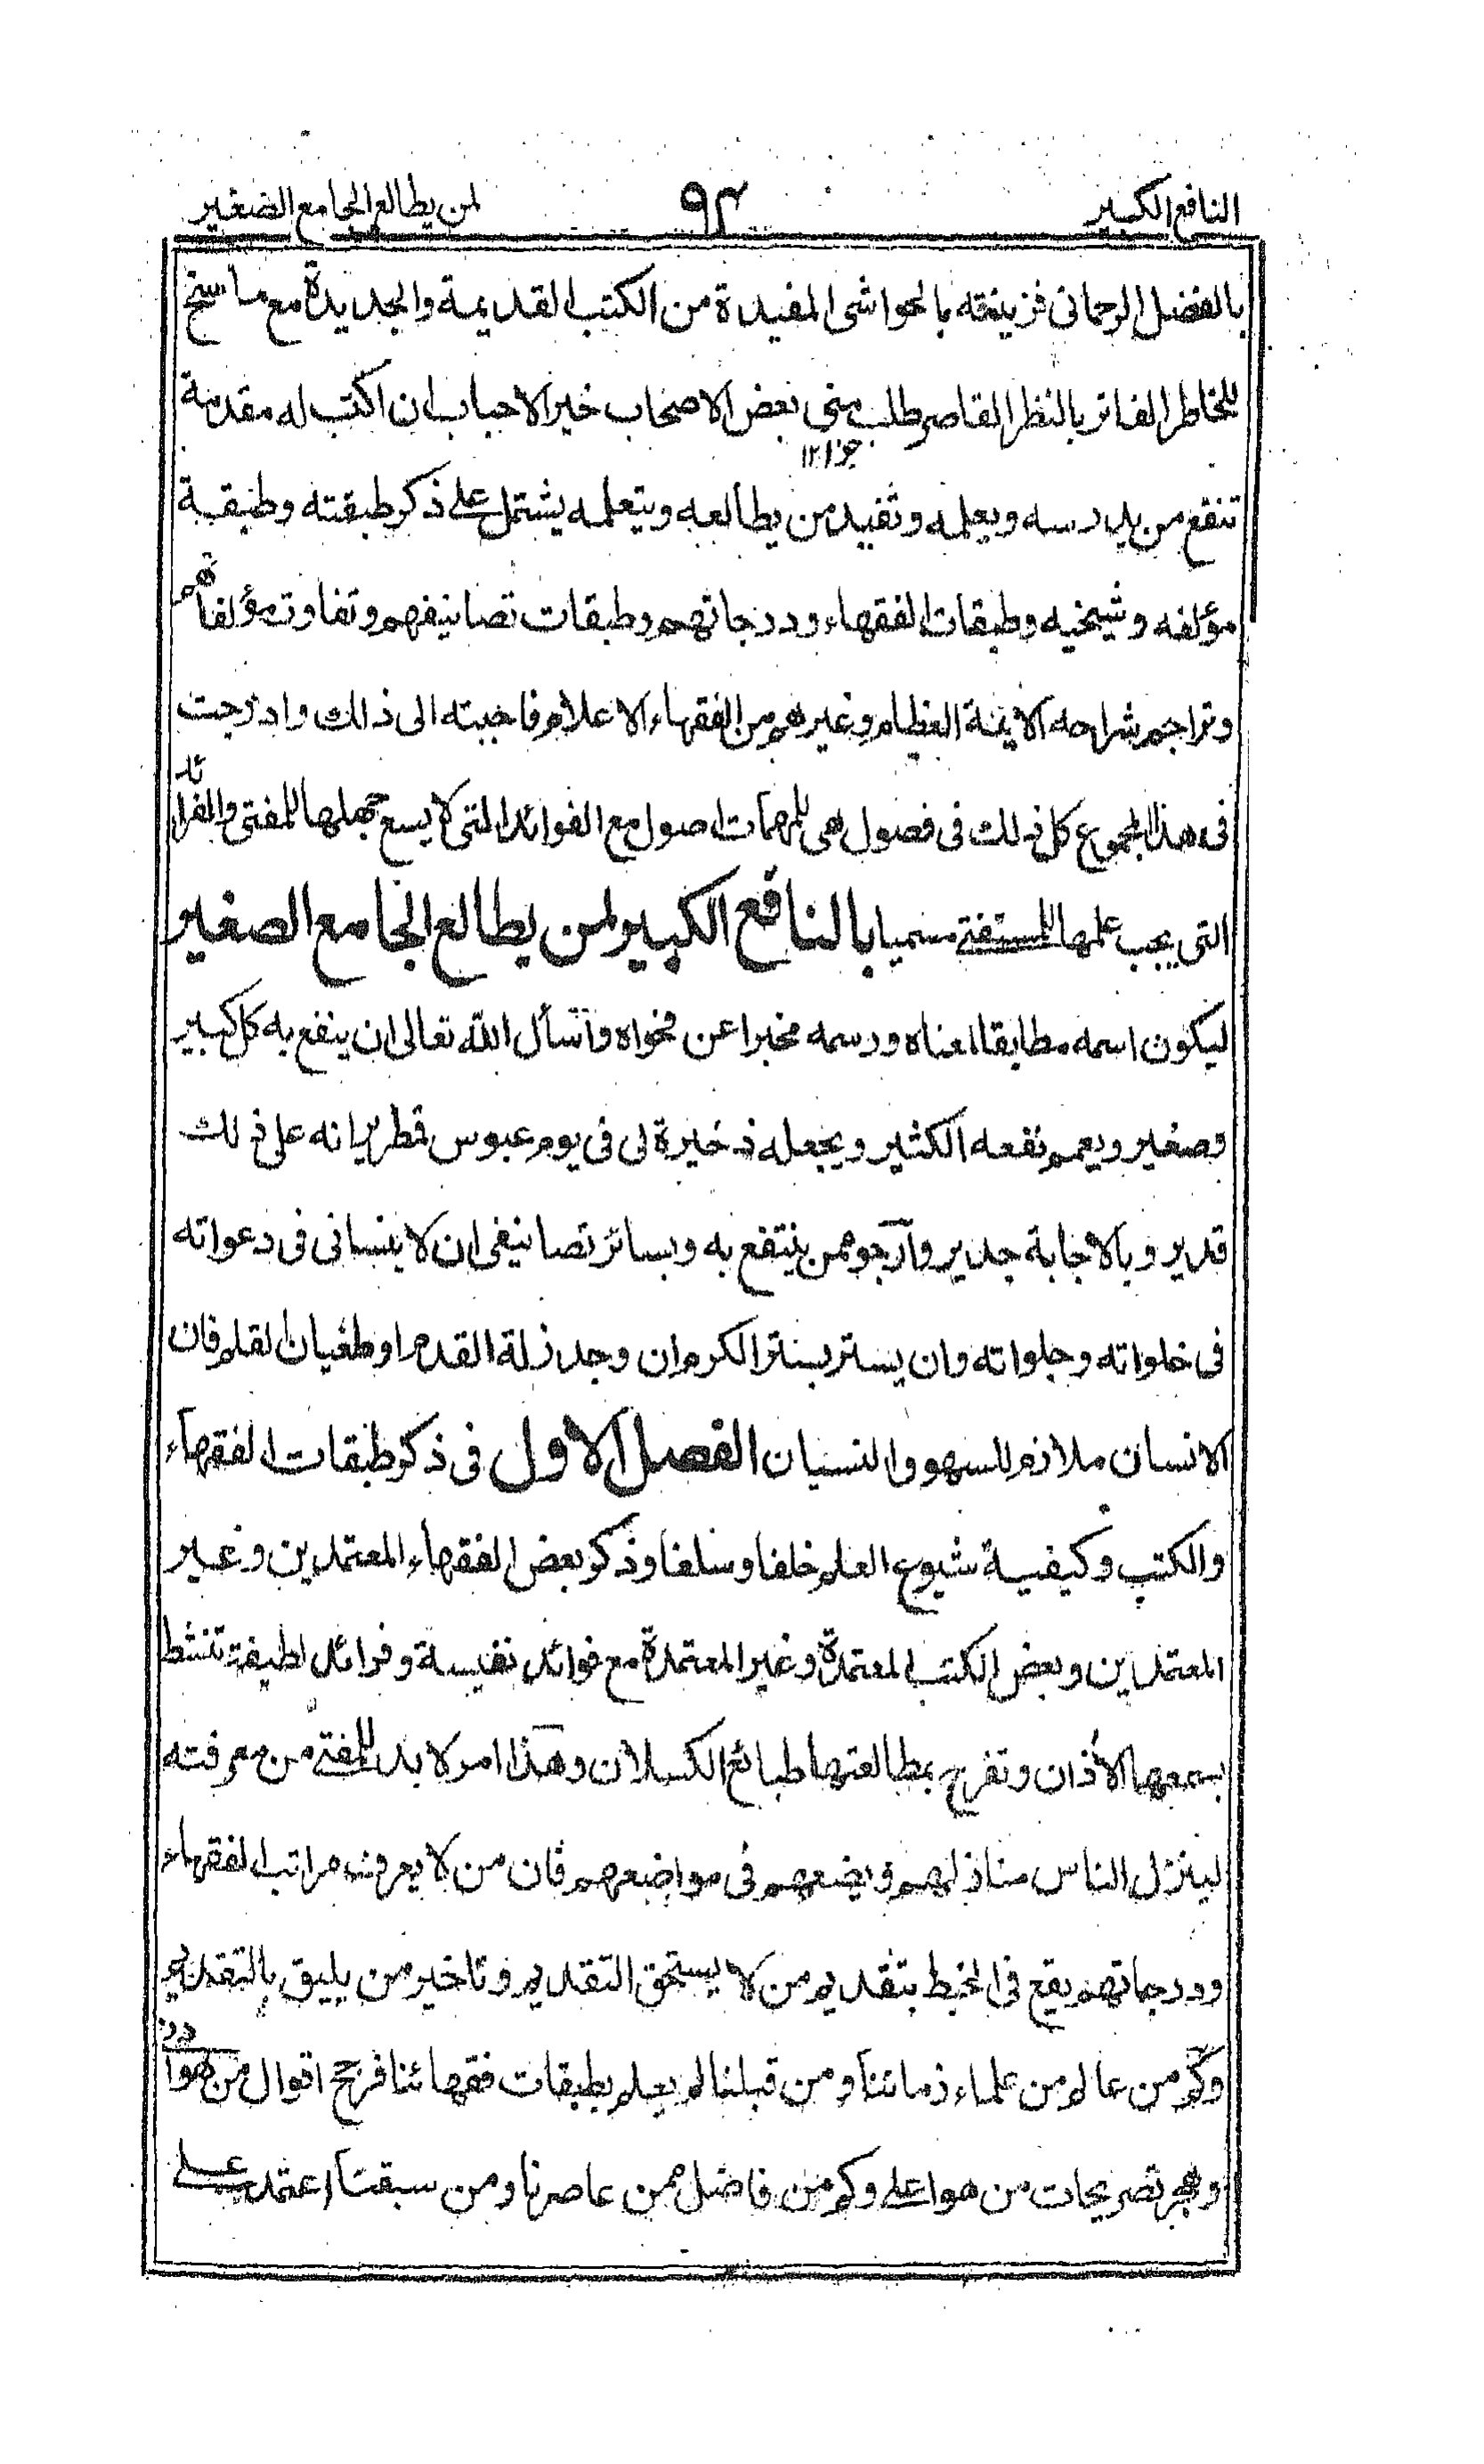 النافع الكبير ٩٢ لمن يطالع الجامع الصغير
بالفضل الرحمانى فزينته بالحواشى المفيدة من الكتب القديمة والجديدة مع ما سنح
للخاطر الفاتر بالنظر القاصر طلب منى بعض الاصحاب خير الاحباب ان اكتب له مقدمة
تنفع من يدرسه ويعلمه وتفيد من يطالعه ويتعلمه يشتمل على ذكر طبقته وطبقة
مؤلفه وشيخيه وطبقات الفقهاء ودرجاتهم وطبقات تصانيفهم وتفاوت مؤلفاتهم
وتراجم شراحه الائمة العظام وغيرهم من الفقهاء الاعلام فاجبته الى ذلك وادرجت
فى هذا المجموع كل ذلك فى فصول هى للمهمات اصول مع الفوائد التى لا يسع جهلها للمفتى والفرائد
التى يجب علمها للمستفتى مسميا بالنافع الكبير لمن يطالع الجامع الصغير
ليكون اسمه مطابقا لمعناه ورسمه مخبرا عن فحواه واسأل الله تعالى ان ينفع به كل كبير
وصغير ويعم نفعه الكثير ويجعله ذخيرة لى فى يوم عبوس قمطرير انه على ذلك
قدير وبالاجابة جدير وارجو ممن ينتفع به وبسائر تصانيفى ان لا ينسانى فى دعواته
فى خلواته وجلواته وان يستر بستر الكرم ان وجد زلة القدم او طغيان القلم فان
الانسان ملازم للسهو والنسيان الفصل الاول فى ذكر طبقات الفقهاء
والكتب وكيفية شيوع العلم خلفا وسلفا وذكر بعض الفقهاء المعتمدين وغير
المعتمدين وبعض الكتب المعتمدة وغير المعتمدة مع فوائد نفيسة وفرائد لطيفة تنشط
بسمعها الآذان وتفرح بمطالعتها طبائع الكسلان وهذا امر لا بد للمفتى من معرفته
لينزل الناس منازلهم ويضعهم فى مواضعهم فان من لا يعرف مراتب الفقهاء
ودرجاتهم يقع فى الخبط بتقديم من لا يستحق التقديم وتاخير من يليق بالتقديم
وكم من عالم من علماء زماننا ومن قبلنا لم يعلم بطبقات فقهائنا فرجح اقوال من هو ادون
وهجر تصريحات من هو اعلى وكم من فاضل ممن عاصرنا ومن سبقنا اعتمد على